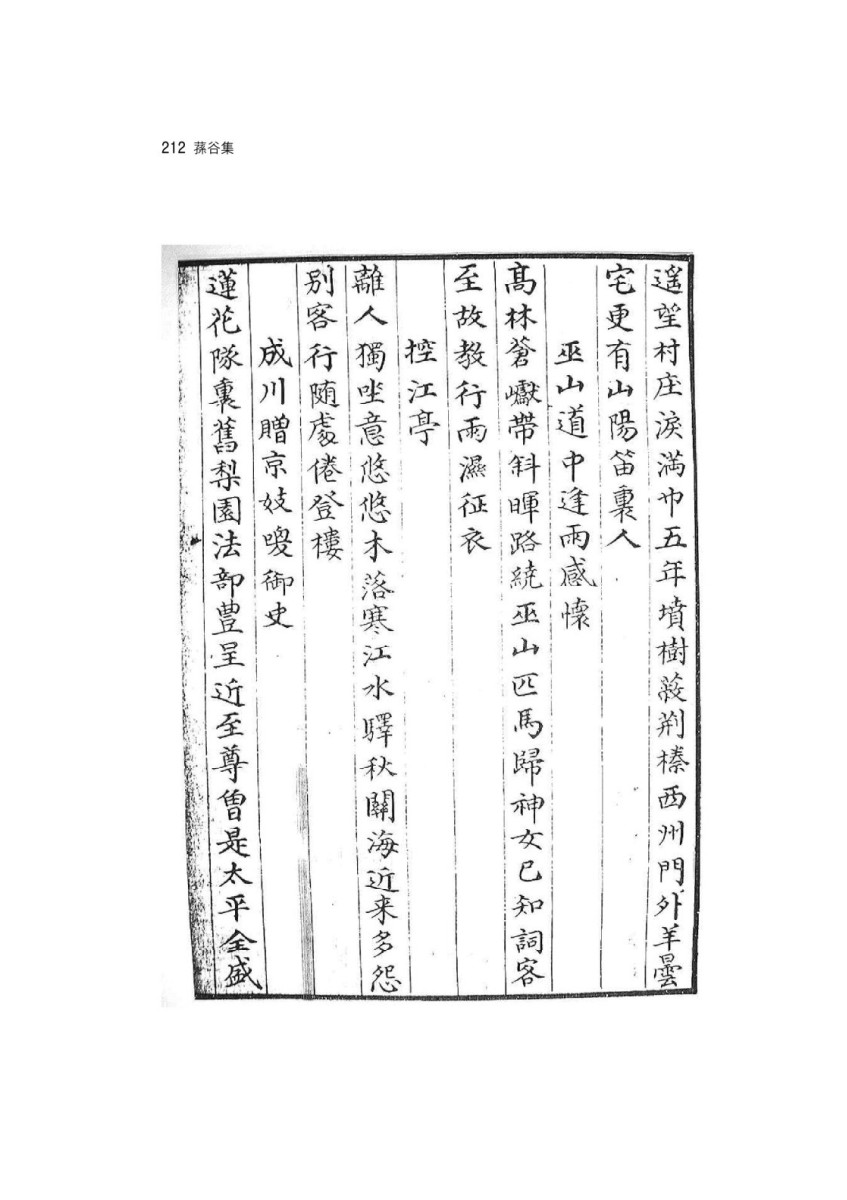 212 蓀谷集
遥望村庄淚滿巾五年墳樹蔽荆榛西州門外羊曇
宅更有山陽笛裏人
巫山道中逢雨感懷
髙林蒼巘帶斜暉路繞巫山匹馬歸神女已知詞客
至故教行雨濕征衣
控江亭
離人獨坐意悠悠木落寒江水驛秋關海近来多怨
别客行随處倦登樓
成川贈京妓嘲御史
蓮花隊裏舊梨園法部豊呈近至尊曽是太平全盛